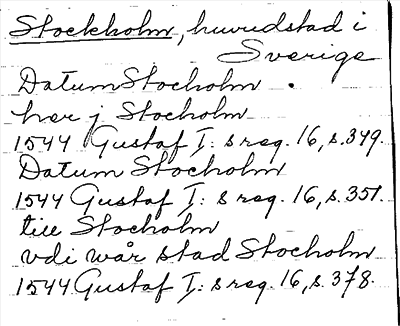 Stockholm, huvudstad i
Sverige
Datum Stocholm
her j Stocholm
1544 Gustaf I: s reg. 16, s. 349.
Datum Stocholm
1544 Gustaf I: s reg. 16, s. 351.
till Stocholm
vdi wår stad Stocholm
1544 Gustaf I: s reg. 16, s. 378.